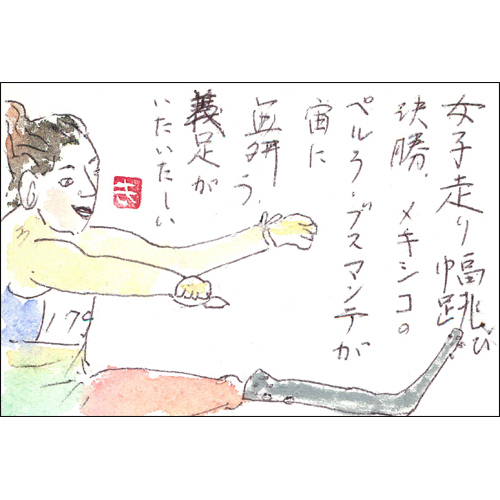 女子走り幅跳び
決勝、メキシコの
ペルラ・ブスマンテが
宙に
舞う、
義足が
いたいたしい
き
179